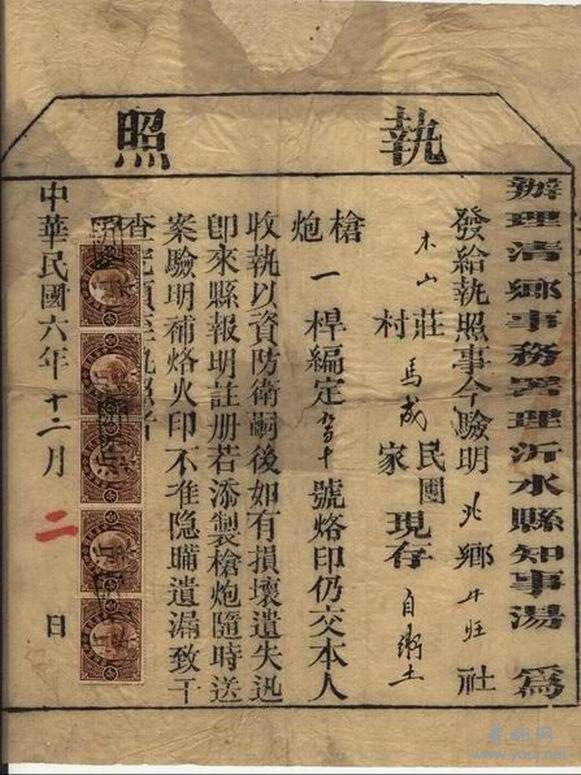 執照
辦理清鄉事務署理沂水縣知事湯 為
發給執照事今驗明 北 鄉 社
木山 莊村 馬成 民團家 現存 自衛土
槍炮 一 桿編定 號烙印仍交本人
收執以資防衛嗣後如有損壞遺失迅
即來縣報明註册若添製槍炮隨時送
案驗明補烙火印不准隐瞞遺漏致干
查究須至執照者
中華民國六年十二月 二 日
www.youj.net